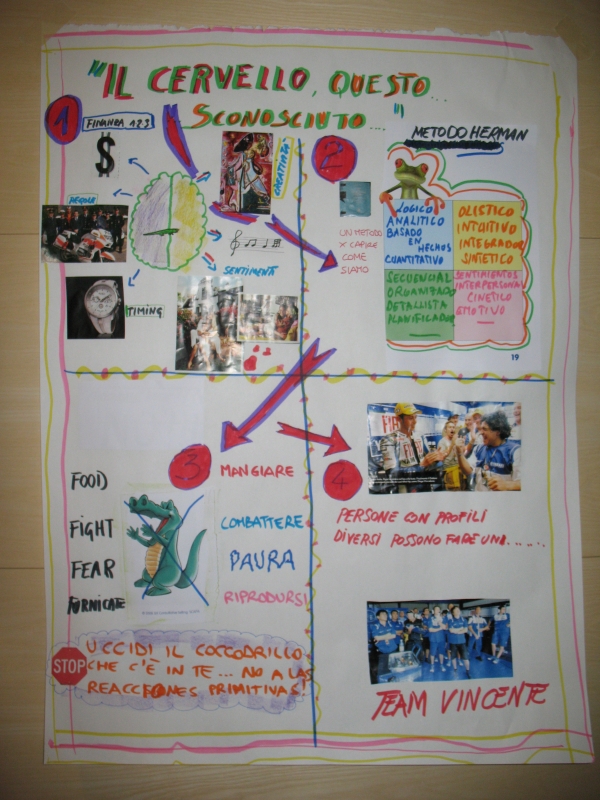 "IL CERVELLO, QUESTO...
SCONOSCIUTO..."
1
FINANZA 1,2,3
$
CREATIVITA'
REGOLE
SENTIMENTI
TIMING
2
METODO HERMAN
UN METODO
X CAPIRE
COME
SIAMO
LOGICO
ANALITICO
BASADO
EN
HECHOS
CUANTITATIVO
OLISTICO
INTUITIVO
INTEGRADOR
SINTETICO
SECUENCIAL
ORGANIZADO
DETALLISTA
PLANIFICADOR
SENTIMIENTOS
INTERPERSONAL
CINETICO
EMOTIVO
19
3
FOOD
FIGHT
FEAR
FORNICATE
MANGIARE
COMBATTERE
PAURA
RIPRODURSI
STOP
UCCIDI IL COCCODRILLO
CHE C'È IN TE... NO A LAS
REACCIONES PRIMITIVAS!
4
FIAT
PERSONE CON PROFILI
DIVERSI POSSONO FARE UN.......
TEAM VINCENTE